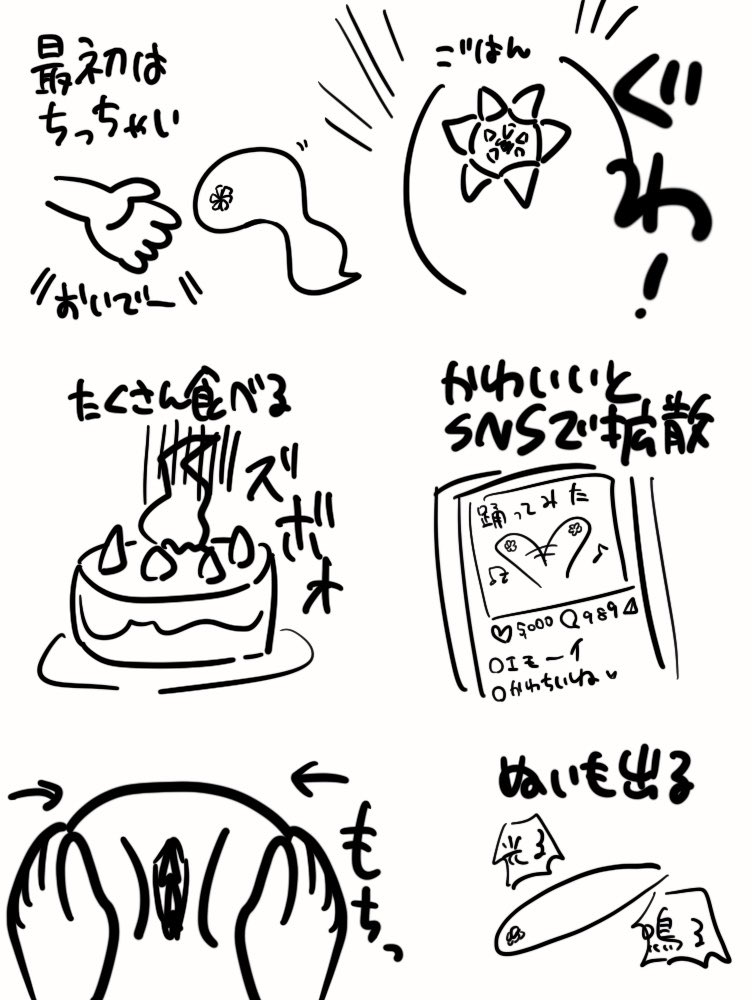 最初は
ちっちゃい
おいでー
ごはん
ぐわ!
たくさん食べる
ズボォ
かわいいと
SNSで拡散
踊ってみた
♡5000 989
エモーイ
かわちいね♥
もちっ
ぬいも出る
光る
鳴る